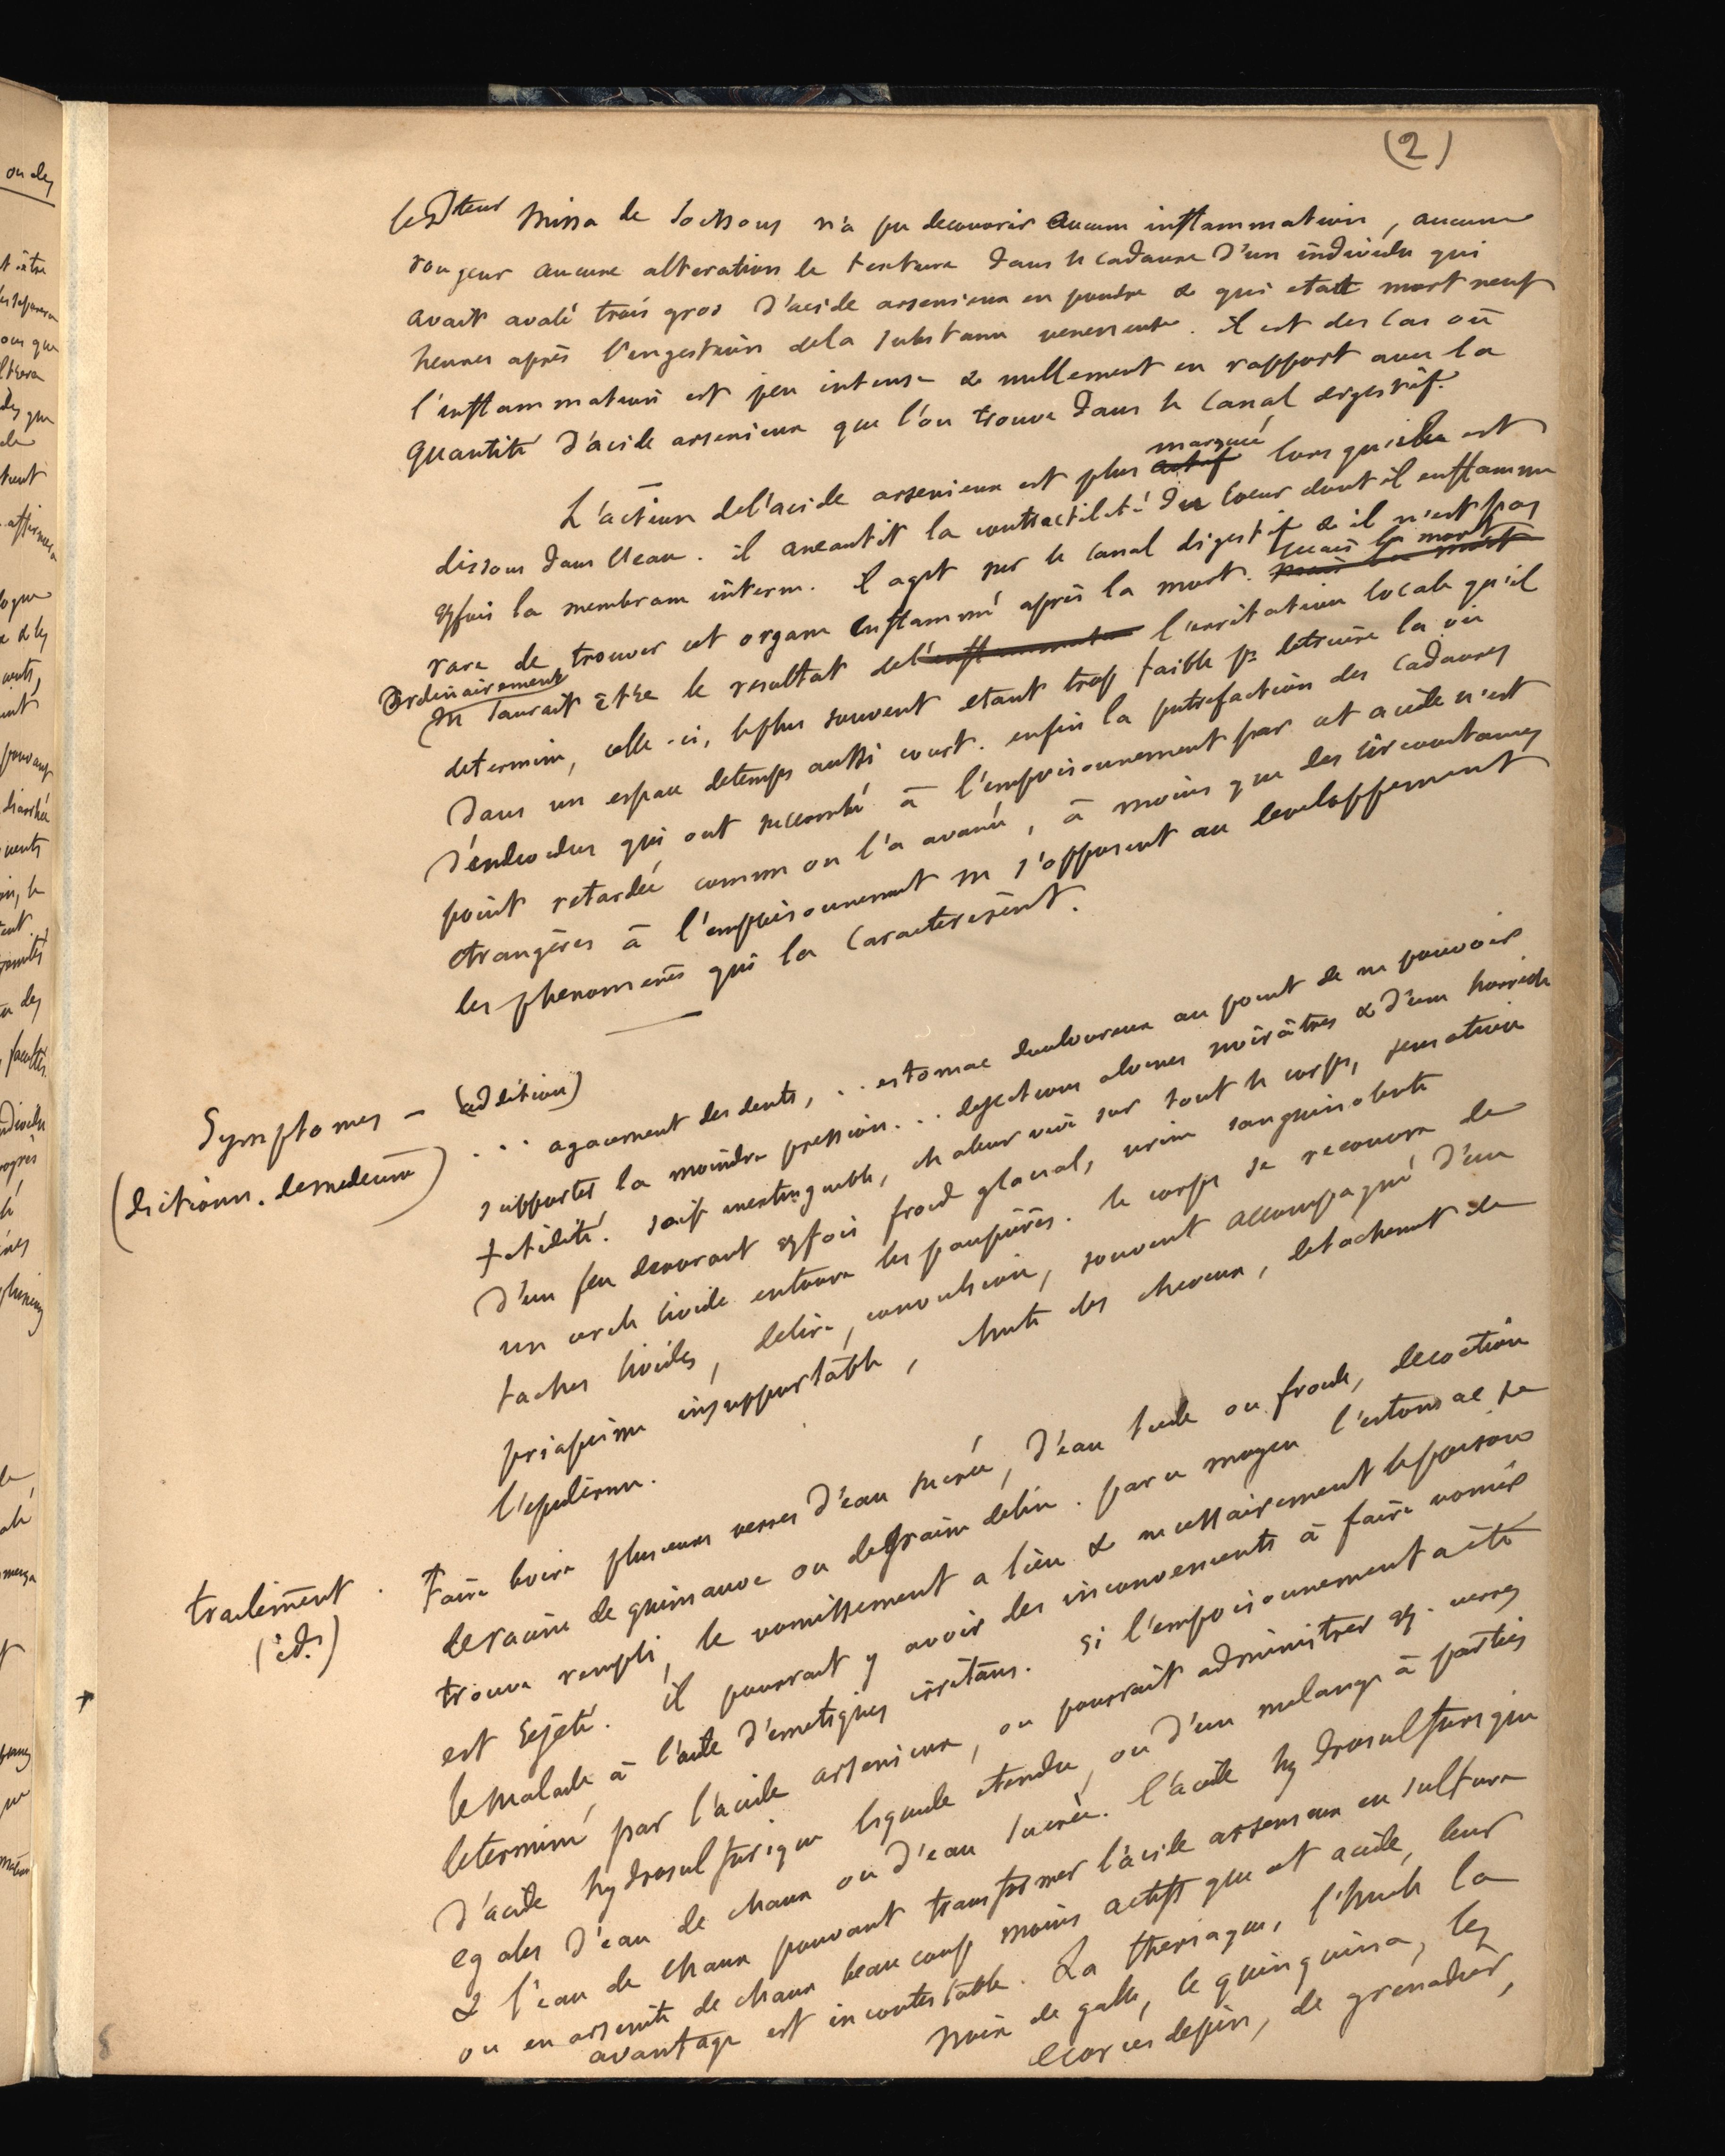 (2)
le Dteur Missa de Soissons n'a pu decouvrir aucune inflammation, aucune
rougeur aucune alteration de texture dans le cadavre d'un individu qui
avait avalé trois gros d'acide arsenieux en poudre & qui etait mort neuf
heures après l'ingestion de la substance veneneuse. il est des cas où
l'inflammation est peu intense & nullement en rapport avec la
quantité d'acide arsenieux que l'on trouve dans le canal digestif.
L'action de l'acide arsenieux est plus actif marquée lorsqu'il est
dissous dans l'eau. il aneantit la contractilité du coeur dont il enflamme
qqfois la membrane interne. il agit sur le canal digestif & il n'est pas
rare de trouver cet organe enflammé après la mort. mais la mort mais la mort
ordinairement
ne saurait être le resultat de l'inflammation l'irritation locale qu'il
determine, celle-ci, le plus souvent etant trop faible pr detruire la vie
dans un espace de temps aussi court. enfin la putrefaction des cadavres
d'individus qui ont succombé à l'empoisonnement par cet acide n'est
point retardée comme on l'a avancé, à moins que des circonstances
etrangères à l'empoisonnement ne s'opposent au developpement
des phenomenes qui la caracterisent.
Symptomes - (addition)
(dictionn. de medecine)
... agacement des dents, ... estomac douloureux au point de ne pouvoir
supporter la moindre pression... dejections alvines noirâtres & d'une horrible
fetidité. soif inextinguible, chaleur vive sur tout le corps, sensation
d'un feu devorant qqfois froid glacial, urine sanguinolente
un cercle livide entoure les paupières. le corps se recouvre de
taches livides, delire, convulsion, souvent accompagné d'un
priapisme insupportable, chute des cheveux, detachement de
l'epiderme.
traitement.
(id.)
Faire boire plusieurs verres d'eau sucrée, d'eau tiede ou froide, decoction
de racine de guimauve ou de graine de lin. par ce moyen l'estomac se
trouve rempli, le vomissement a lieu & necessairement le poison
est rejeté. il pourrait y avoir des inconvenients à faire vomir
le malade à l'aide d'emetiques irritans. si l'empoisonnement a été
determiné par l'acide arsenieux, on pourrait administrer qq. verres
d'acide hydrosulfurique liquide etendu, ou d'un melange à parties
egales d'eau de chaux ou d'eau sucrée. l'acide hydrosulfurique
& l'eau de chaux pouvant transformer l'acide arsenieux en sulfure
ou en arsenite de chaux beaucoup moins actifs que cet acide, leur
avantage est incontestable. La theriaque, l'huile la
noix de galle, le quinquina, les
ecorces de pin, de grenadier,